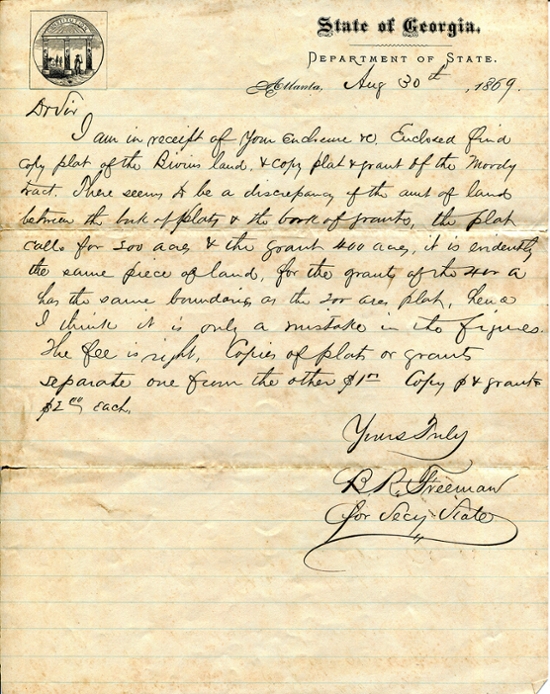 CONSTITUTION
State of Georgia,
DEPARTMENT OF STATE.
Atlanta, Aug 30th, 1869.
Dr Sir
I am in receipt of Your Enclosure &c. Enclosed find
copy plat of the Bivins land. & copy plat & grant of the Moody
tract. There seems to be a discrepancy of the amt of land
between the book of plats & the book of grants, the plat
calls for 200 acres & the grant 400 acres, it is evidently
the same piece of land, for the grant of the 400 a
has the same boundaries as the 200 acres plat, hence
I think it is only a mistake in the figures.
The fee is right, Copies of plats or grants
separate one from the other $1 00 Copy p & grants
$2 00 each.
Yours Truly
B. R. Freeman
for Secy State